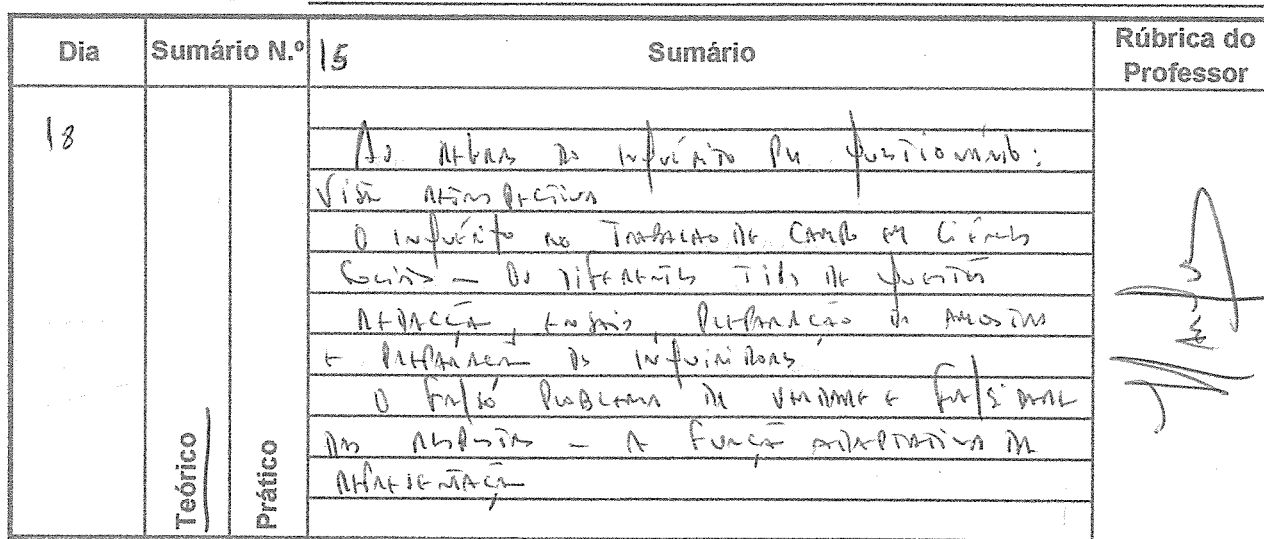 Dia Sumário N.º 15 Sumário Rúbrica do Professor
18
Teórico
Prático
As regras do inquérito por questionário:
visão retrospectiva
O inquérito no trabalho de campo em Ciências
Sociais – Os diferentes tipos de questões
redacção, ensaios, preparação da amostra
e preparação dos inquiridores
O falso problema da verdade e falsidade
das respostas – A função adaptativa da
representação